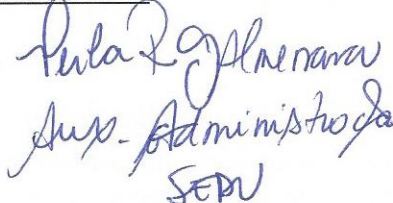 Perla R G Almenara
Aux. Administrada
SEDU